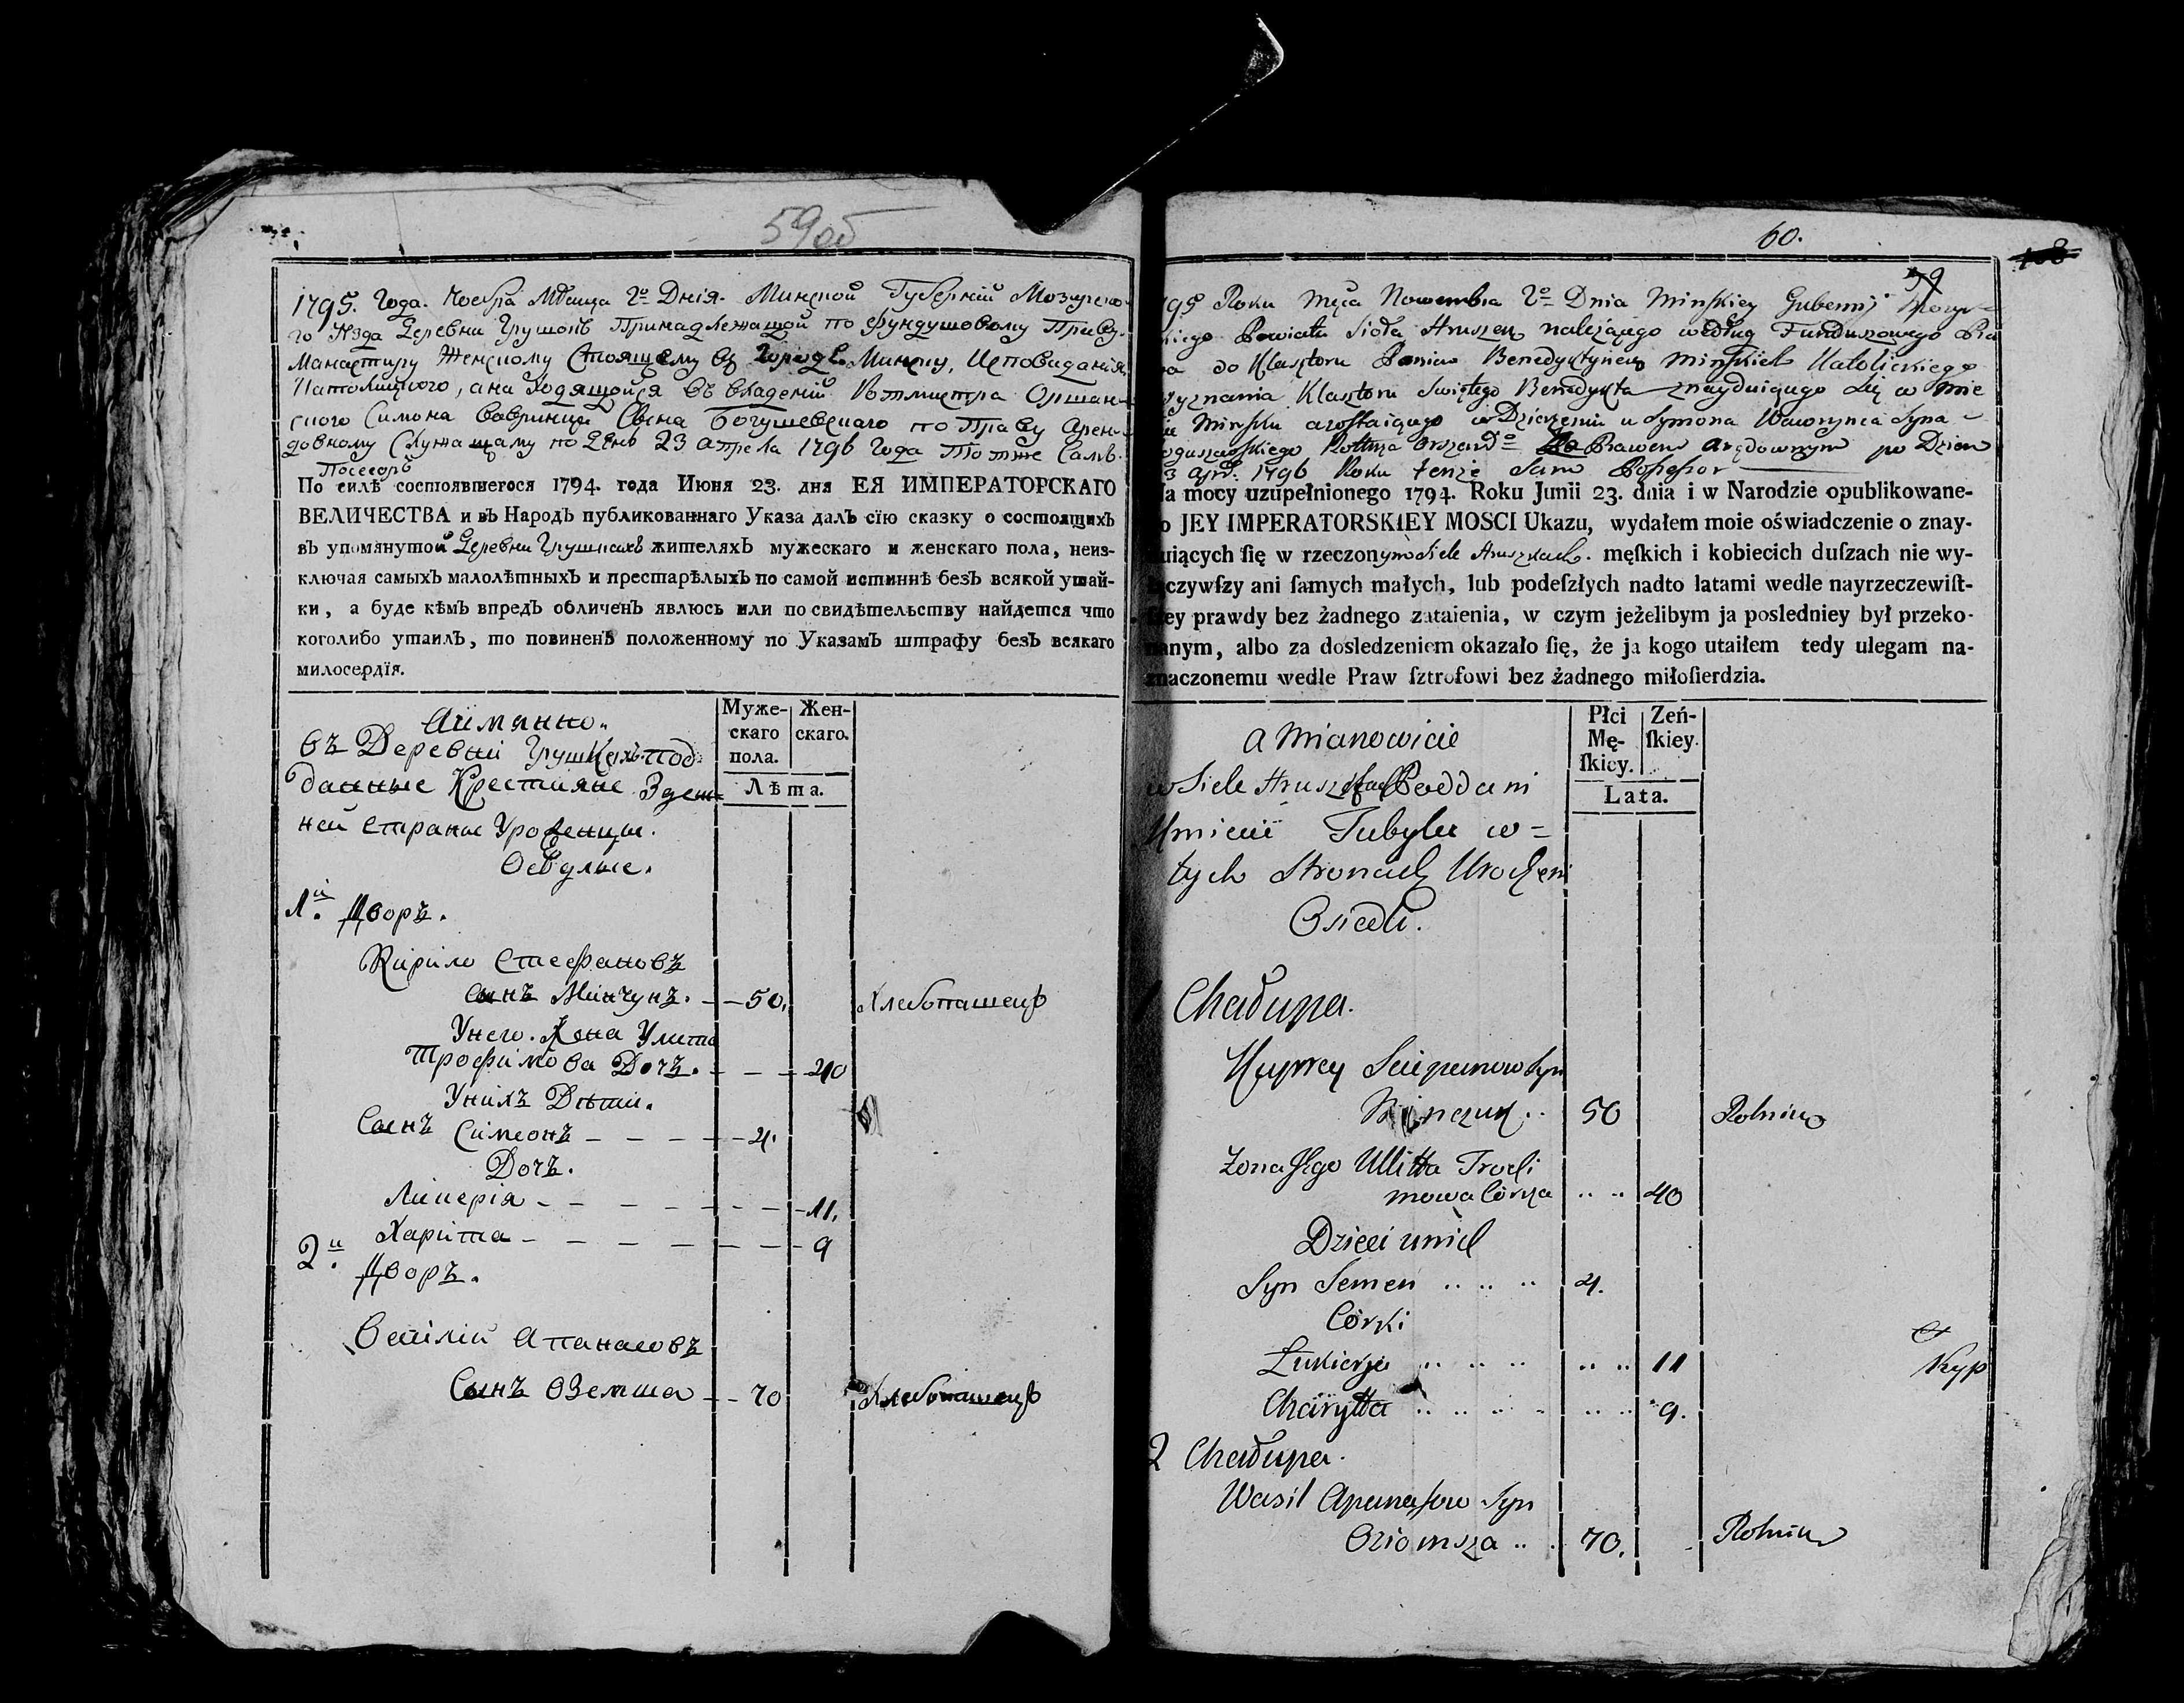 59об
1795. Года. Ноебра Мѣсяца 2го Днія. Минской Губерніи Мозирско-
го Уѣзда Деревни Грушокъ Принадлежащой по Фундушовому Праву
Манастиру Женскому Стоящему въ Городѣ Минску, Исповиданія
Католицкого, а на ходящойся въ владеніи Ротмистра Оршан-
ского Симона Вавринца Сына Богушевскаго по Праву Арен-
довному Служащаму по День 23 апреля 1796 Года Тотже Самъ
Посесоръ
По силѣ состоявшегося 1794. года Июня 23. дня ЕЯ ИМПЕРАТОРСКАГО
ВЕЛИЧЕСТВА и въ Народъ публикованнаго Указа далъ сїю сказку о состоящихъ
въ упомянутой Деревни Грушкахъ жителяхъ мужескаго и женскаго пола, неиз-
ключая самыхъ малолѣтныхъ и престарѣлыхъ по самой истиннѣ безъ всякой утай-
ки, а буде кѣмъ впредъ обличенъ явлюсь или по свидѣтельству найдется что
коголибо утаилъ, то повиненъ положенному по Указамъ штрафу безъ всякаго
милосердїя.
Муже-
скаго
пола.
Жен-
скаго.
Лѣта.
Аимянно.
въ Деревни Грушкахъ под
данные Крестияне Здеш
ней стране Уроденцы.
Оседлые.
1й. Дворъ.
Кирило Стефановъ
Сынъ Минчукъ. 50. Хлебопашецъ
Унего Жена Улита
Трофимова Дочъ. 40
Унихъ Дѣти.
Сынъ Симеонъ 4.
Дочъ.
Ликерія 11.
Харита 9
2й. Дворъ.
Василий Апанасовъ
Сынъ Оземша 70 Хлебопашецъ
60.
59
108
795 Roku Męca Nowembra 2o Dnia Minskiey Gubernij Mozyr-
skiego Powiatu Sioła Hruszek należącego według Funduszowego Pra
wa do Klasztoru Panien Benedyktynek Minskich Katolickiego
wyznania Klasztoru Swiętego Benedykta znayduiącego się w Mie
ście Minsku azostaiącego w Dzierżeniu u Symona Wawrynca Syna
oguszewskiego Rottmza Orszando Prawem Arędownym po Dzien
3 apr. 1796 Roku tenże Sam Possessor
a mocy uzupełnionego 1794. Roku Junii 23. dnia i w Narodzie opublikowane-
o JEY IMPERATORSKIEY MOSCI Ukazu, wydałem moie oświadczenie o znay-
uiących ſię w rzeczonym Siele Hruszkach. męſkich i kobiecich duſzach nie wy-
czywſzy ani ſamych małych, lub podeſzłych nadto latami wedle nayrzeczewiſt-
ey prawdy bez żadnego zataienia, w czym jeżelibym ja posledniey był przeko-
nanym, albo za dosledzeniem okazało ſię, że ja kogo utaiłem tedy ulegam na-
znaczonemu wedle Praw ſztrofowi bez żadnego miłoſierdzia.
Płci
Mę-
ſkicy.
Zeń-
ſkiey.
Lata.
a Mianowicie
w Siele Hruszkach Poddani
Kmiecii Tubylcy w=
tych Stronach Urodzeni
Osiedli.
1 Chałupa.
Kiryłey Sciepanow Syn
Minczuk 50 Rolnik
Zona Jego Ullitta Trochi
mowa Córka 40
Dzieci unich
Syn Semen 4.
Córki
Łukierja 11
Charytta 9.
Kyp
2 Chałupa.
Wasil Apanasow Syn
Oziomsza 70. Rolnik